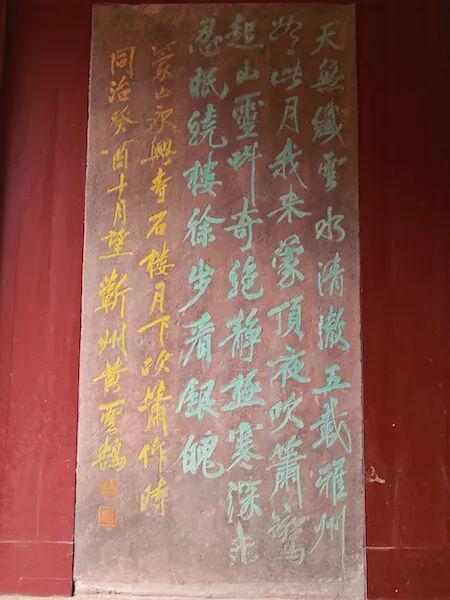 天無纖雲水清澈五載雅州
無此月我来蒙頂夜吹簫驚
起山靈叫奇絶靜極寒深未
忍眠繞樓徐步看銀魄
蒙山永興寺石樓月下吹簫作時
同治癸酉十月望蘄州黃雲鵠